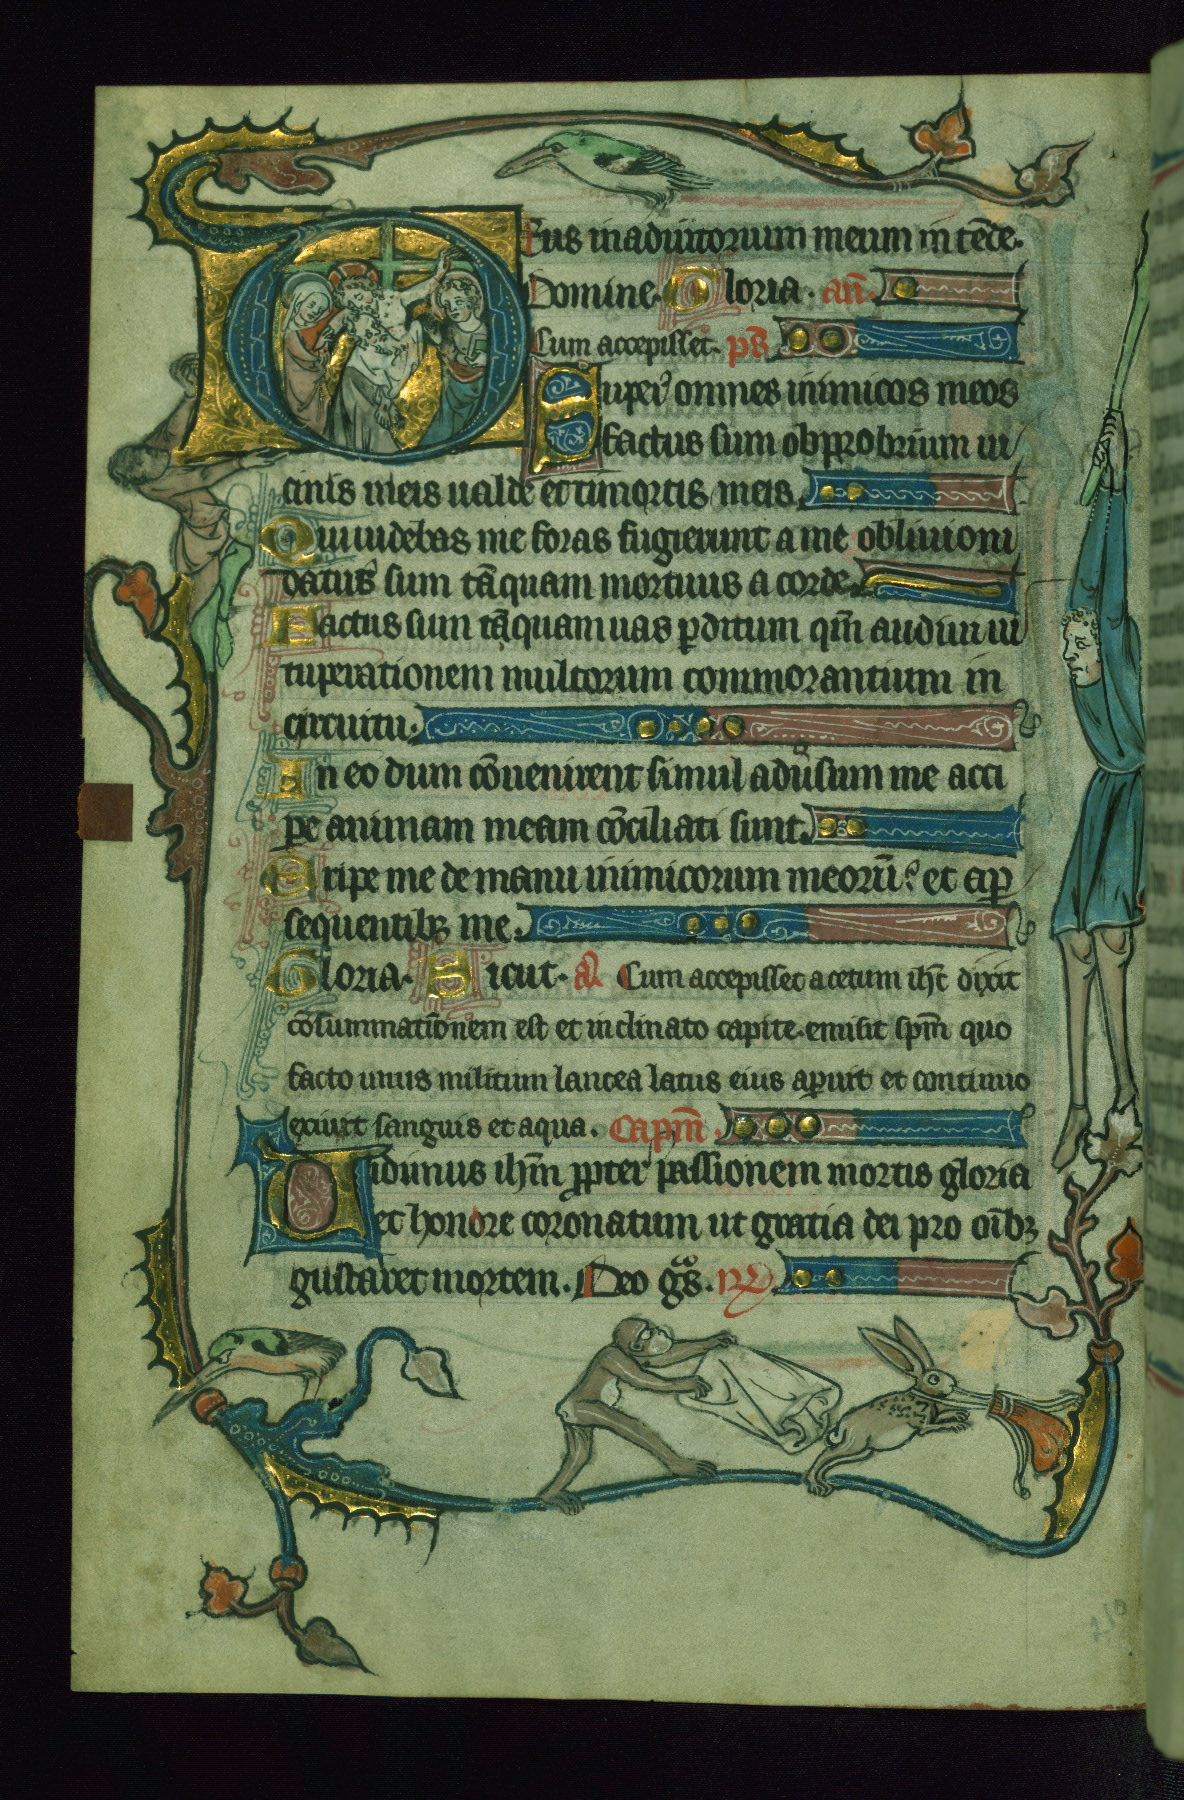 Deus in adiutorium meum in tēde.
Domine. Gloria. añ.
Cum accepisset. ps
Super omnes inimicos meos
factus sum obprobrium ui
cinis meis ualde et timor tis meis
Qui uidebas me foras fugierunt a me obliuioni
datus sum tāquam mortuus a corde.
Factus sum tāquam uas pditum qm̄ audiui ui
tuperationem multorum commorantium in
circuitu.
In eo dum cōuenirent simul adūsum me acci
pe animam meam cōciliati sunt.
Eripe me de manu inimicorum meorū: et a p
sequentibꝫ me.
Gloria. Sicut. a Cum accepisset acetum ihc dixit
cōsummationem est et inclinato capite. emisit spm̄ quo
facto unus militum lancea latus eius apuit et continuo
exiuit sanguis et aqua. Capm̄.
Uidimus ihm̄ ppter passionem mortis gloria
et honore coronatum ut gratia dei pro oībꝫ
gustaret mortem. Deo gr̄as.
210